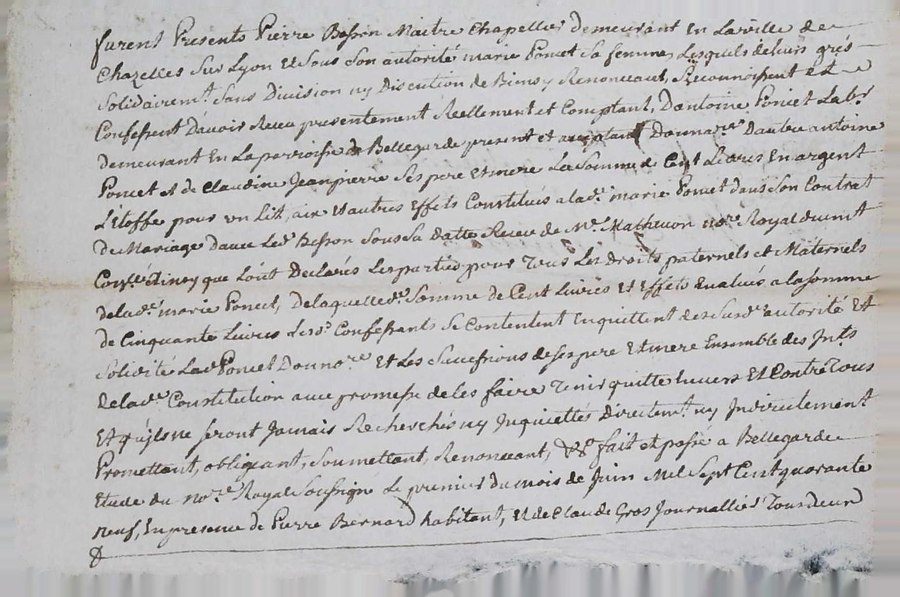 furent Presents Pierre Besson Maitre Chapellier demeurant En Laville de
Chazelles Sur Lyon Et Sous Son autorité marie Poncet Sa femme, Lesquels de leurs grés
Solidairemt. Sans Division ny Discution de Biens y Renonceant, Reconnoissent et
Confessent D'avoir Receu presentement Reellement et Comptant, D'antoine Poncet Labr.
demeurant En La parroisse de Bellegarde present et acceptant Donnare. D'autre antoine
Poncet et de Claudine Jeanpierre Ses pere Et mere La Somme de Cent Livres En argent
L'Etoffe pour un Lit, aix Et autres Effets Constitués a lade. marie Poncet dans Son Contrat
de Mariage D'avec Led. Besson Sous Sa Datte Receu de Me. Mathevon nore. Royal
que L'ont Declarés Les parties pour Tous Les Droits paternels et Maternels
de lade. marie Poncet, de laquelle de. Somme de Cent Livres Et Effets Evalués a la Somme
de Cinquante Livres Lesds. Confessants Se Contentent En quittent de Susde. autorité Et
Solidité Led. Poncet Donnore. Et Les Successions de Ses pere Et mere Ensemble des Jnts
de lade. Constitution avec promesse de les faire Tenir quitte Envers Et Contre Tous
Et qu'ils ne Seront Jamais Recherchés ny Jnquiettés Directemt. ny Jndirectement
Promettant, obligeant, Soumettant, Renonceant, &c. fait et passé a Bellegarde
Etude du nore. Royal Soussigné Le premier du mois de Juin Mil Sept Cent quarante
neuf, En presence de Pierre Bernard habitant, Et de Claude Gros Journallier